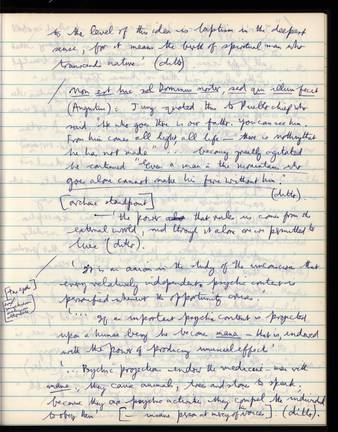 to the level of this idea is baptism in the deepest
sense, for it means the birth of spiritual man who
transcends nature.' (ditto)
/ Non est hic sol Dominus noster, sed qui illum fecit
(Augustin): Jung quoted this to Pueblo chief who
said 'He who goes there is our father. You can see him.
From him comes all light, all life — there is nothing that
he has not made' ... becoming greatly agitated
he continued "Even a man in the mountains who
goes alone cannot make his fire without him."
(ditto).
[archaic standpoint]
— 'the power that rules us comes from the
external world, and through it alone are we permitted to
live' (ditto).
'It is an axiom in the study of the unconscious that
every relatively independent psychic content is
personified whenever the opportunity arises.'
'... If an important psychic content is projected
upon a human being he becomes mana — that is, endowed
with the power of producing unusual effects'
'... Psychic projection endows the medicine-man with
mana, they cause animals, trees and stones to speak,
because they are psychic activates they compel the individual
to obey them' [— insane person at mercy of his voices] (ditto).